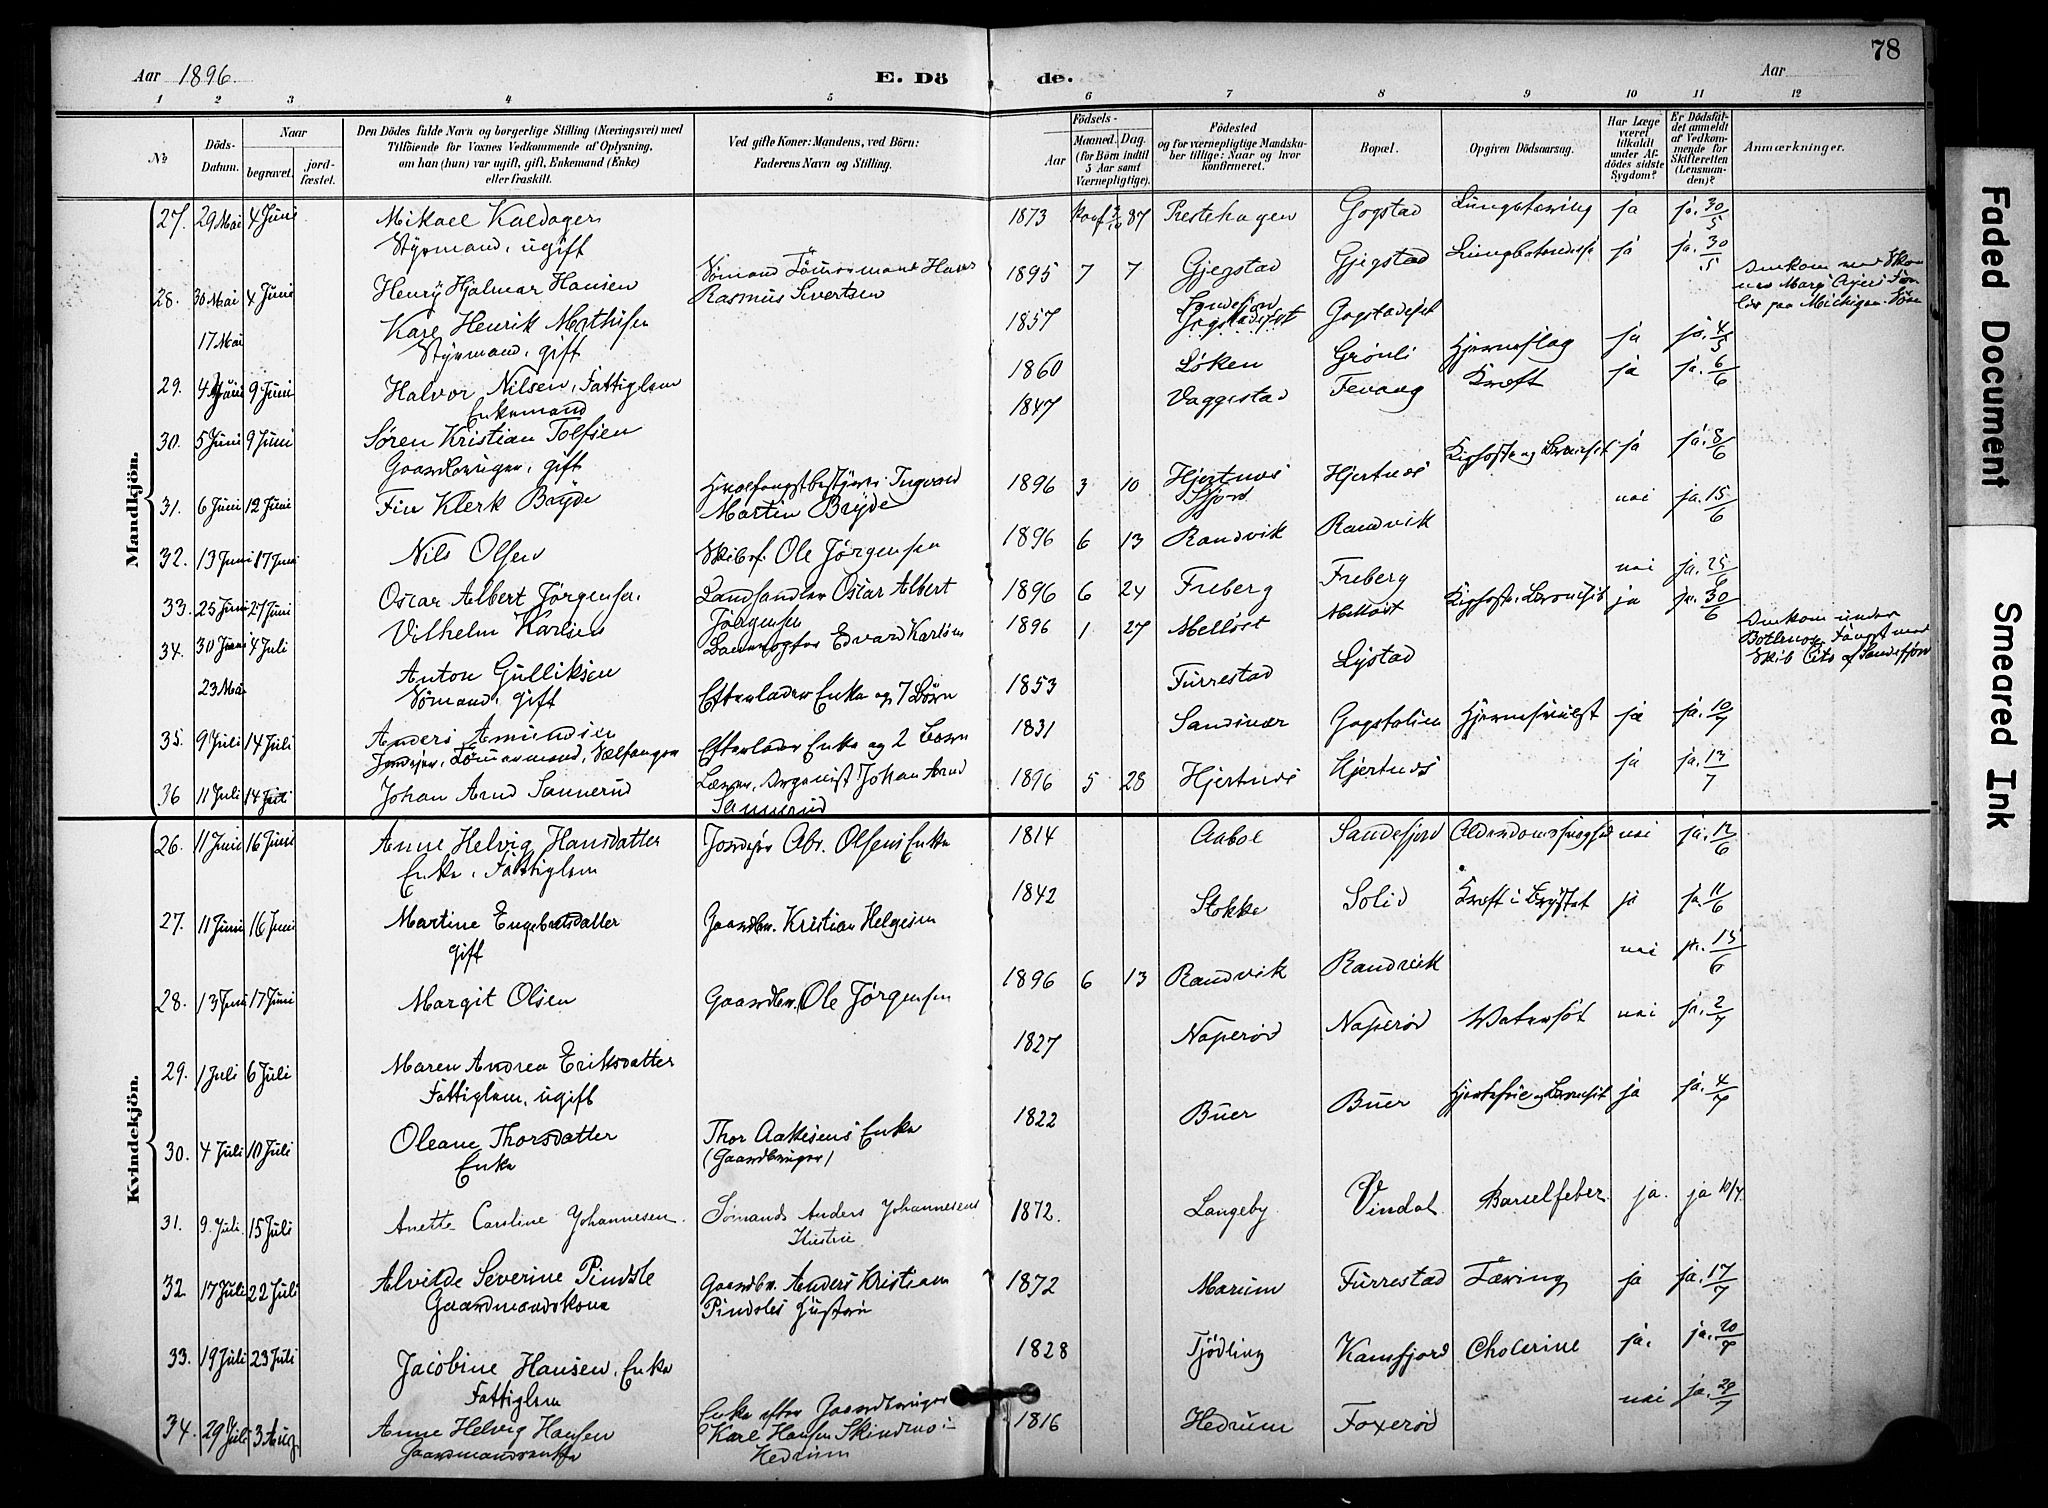 78
Aar 1896.
E. Dö de.
Aar
1 2 3 4 5 6 7 8 9 10 11 12
№
Döds-Datum.
Naar
begravet.
jord-fæstet.
Den Dödes fulde Navn og borgerlige Stilling (Næringsvei) med
Tilföiende for Voxnes Vedkommende af Oplysning,
om han (hun) var ugift, gift, Enkemand (Enke)
eller fraskilt.
Ved gifte Koner: Mandens, ved Börn:
Faderens Navn og Stilling.
Födsels-
Aar
Maaned. Dag.
(for Börn indtil
5 Aar samt
Værnepligtige).
Födested
og for værnepligtige Mandska-
ber tillige: Naar og hvor
konfirmeret.
Bopæl.
Opgiven Dödsaarsag.
Har Læge
været
tilkaldt
under Af-
dödes sidste
Sygdom?
Er Dödsfal-
det anmeldt
af Vedkom-
mende for
Skifteretten
(Lensman-
den)?
Anmærkninger.
Mandkjön.
27. 29 Mai 4 Juni Mikael Kaldager 1873 Konf 87 Prestehagen Gogstad Lungetæring ja ja. 30/5
Styrmand, ugift
28. 30 Mai 4 Juni Henry Hjalmar Hansen Sømand Tømmermand Hans 1895 7 7 Gjegstad Gjegstad ja ja. 30/5
Rasmus Sivertsen
17 Mai Karl Henrik Mathisen 1857 Gogstadeset Omkom med
Styrmand, gift
29. 4 Juni 9 Juni Halvor Nilsen, Fattiglem 1860 Løken Grönli Hjerneslag ja ja. 4/5
Enkemand
30. 5 Juni 9 Juni Søren Kristian Tolfsen 1847 Vaggestad Fevang Kræft ja ja. 6/6
Gaardbruger, gift
31. 6 Juni 12 Juni Fin Klerk Bryde Hvalfangstbestyrer Ingvard 1896 3 10 Hjertnes Hjertnes Kighoste og ja ja. 8/6
Martin Bryde
32. 13 Juni 17 Juni Nils Olsen Ole Jørgensen 1896 6 13 Randvik Randvik nei ja. 15/6
33. 25 Juni 27 Juni Oscar Albert Jørgensen Landhandler Oscar Albert 1896 6 24 Freberg Freberg nei ja. 25/6
Jørgensen
34. 30 Juni 4 Juli Vilhelm Karlsen Edvard Karlsen 1896 1 27 Melløst Melløst Kighoste, ja ja. 30/6
23 Mai Anton Gulliksen Efterlader Enke og 7 Børn 1853 Furrestad Lystad Omkom under
Botlenos Fangst med
Skib af Sandefjord
Sømand, gift
35. 9 Juli 14 Juli Anders Amundsen Efterlader Enke og 2 Børn 1831 Sandsvær Gogstalien ja ja. 10/7
Jordejer, Tømmermand, Sælfanger
36 11 Juli 14 Juli Johan Arnd Sannerud Lærer, Organist Johan Arnd 1896 5 28 Hjertnes Hjertnes ja ja. 13/7
Sannerud
Kvindekjön.
26. 11 Juni 16 Juni Anne Helvig Hansdatter Jordejer Abr. Olsens Enke 1814 Aabol Sandefjord Alderdomssvaghed nei ja. 12/6
Enke, Fattiglem
27. 11 Juni 16 Juni Martine Engebretsdatter Gaardbr. Kristian Helgesen 1842 Stokke Solid Kræft i Brystet ja ja. 11/6
gift
28. 13 Juni 17 Juni Margit Olsen Gaardbr. Ole Jørgensen 1896 6 13 Randvik Randvik nei ja. 15/6
29. 1 Juli 6 Juli Maren Andrea Eriksdatter 1827 Naperød Naperød Watersöt nei ja. 2/7
Fattiglem, ugift
30. 4 Juli 10 Juli Oleane Thorsdatter Thor Aakesens Enke 1822 Buer Buer ja ja. 4/7
Enke (Gaardbruger)
31. 9. Juli. 15 Juli Anette Caroline Johannesen. Sømands Anders Johannesens 1872. Langeby Vindal Barselfeber. ja. ja 10/7.
Hustru
32 17 Juli 22 Juli Alvilde Severine Pindsle Gaardbr. Anders Kristian 1872 Marum Furrestad Tæring ja ja. 17/7
Gaardmandskone Pindsles Hustru
33. 19 Juli 23 Juli Jacobine Hansen, Enke 1828 Tjödling Kamfjord Cholerine ja. ja. 20/7
Fattiglem
34. 29 Juli 3 Aug Anne Helvig Hansen Enke efter Gaardbruger 1816 Hedrum Foxerød nei ja. 29/7
Gaardmandsenke Karl Hansen Skindmo i
Hedrum
Faded Document
Smeared Ink